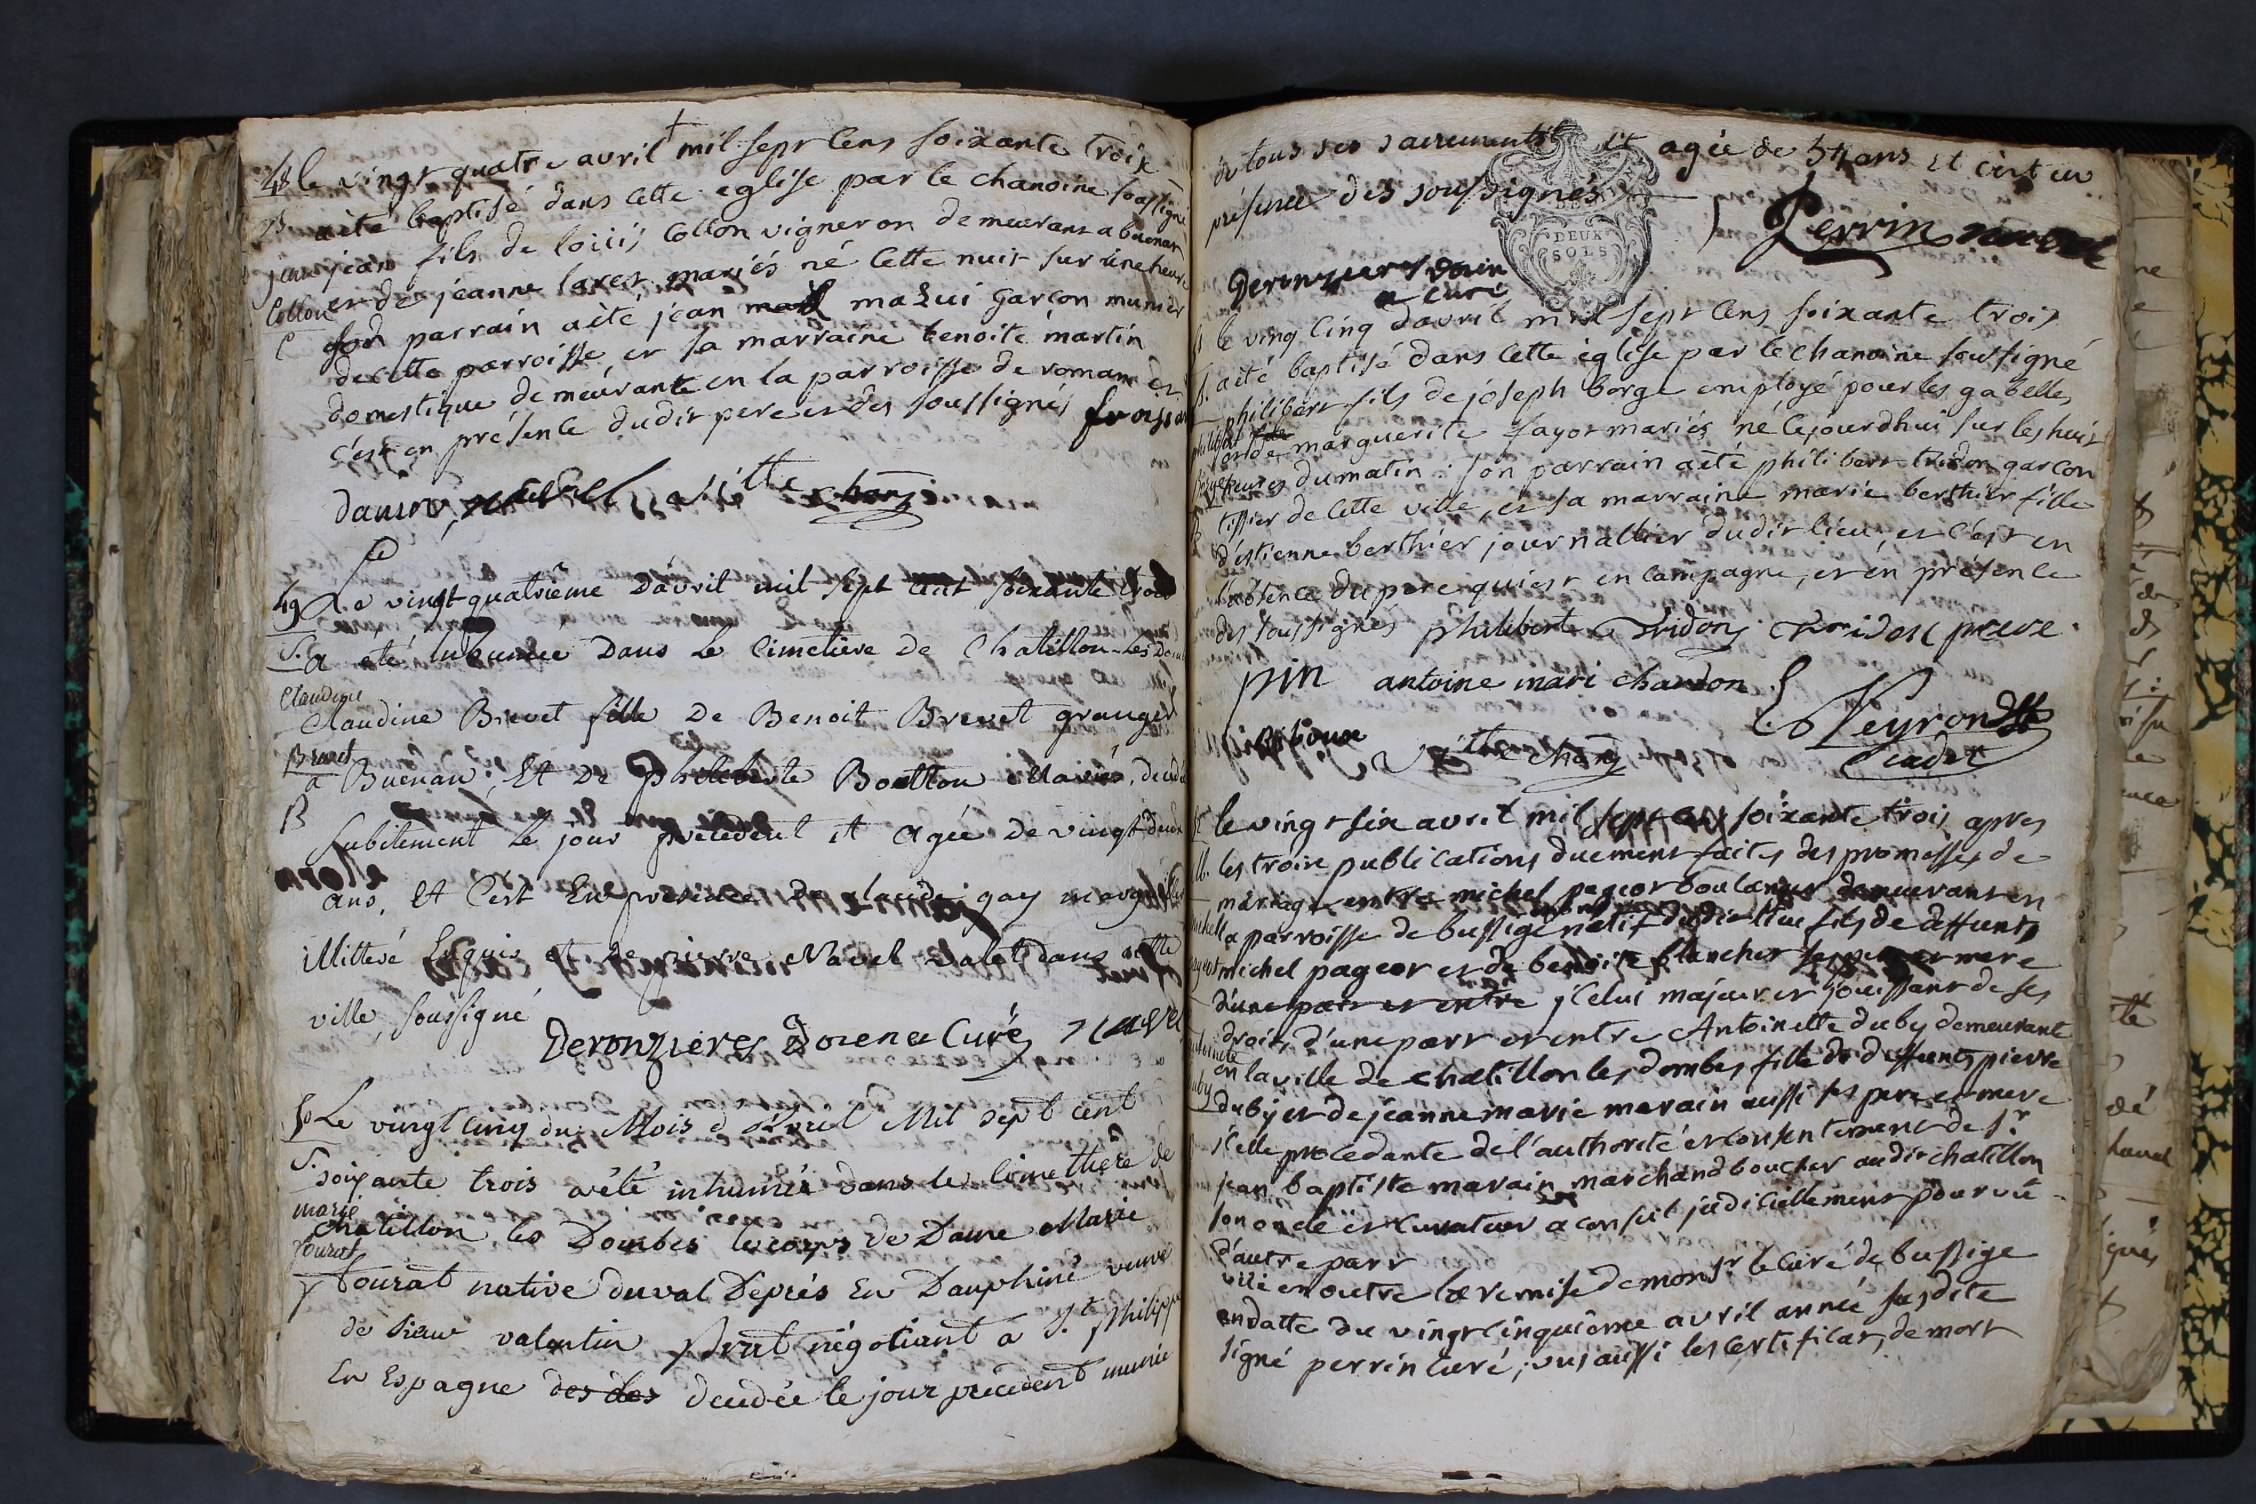 48 le vingt quatre avril mil sept cens soixante trois
B a été baptisé dans cette eglise par le chanoine soussigné
jean jean fils de loüis Collon vigneron demeurant a buenan
Collon et de jeanne laret mariés né cette nuit sur une heure
son parrain a été jean mazui garçon munier
de cette parroisse et sa marraine benoite martin
domestique demeurante en la parroisse de romans et
c'est en présence dudit pere et des soussignés
navel
49 Le vingt quatriême d'avril mil sept cent soixante trois
S. a été inhumée Dans Le Cimetiere de Chatillon-Les Dom
Claudine
Claudine Brevet fille De Benoit Brevet granger
Brevet
a Buenan, Et De Philiberte Boulton Mariés, decedée
B
subitement Le jour precedent et agée de vingt deux
ans, et C'est En presence De claude gay
illitteré Enquis et de pierre Navel valet dans cette
ville, soussigné
Deronzieres Doien et Curé navel
50 Le vingt cinq du Mois d'Avril Mil sept cent
S. soixante trois a été inhumée dans le cimethiere de
marie
chatillon les Dombes le corps de Dame Marie
Tourat
Tourat native du val Deprés En Dauphiné veuve
de sieur valentin negotiant a St philippe
En Espagne des des decedée le jour precedent munie
de tous ses sacrements et agée de 54 ans et c'est en
présence des soussignés
DEUX
SOLS
Perrin navel
Deronzieres doien
et curé
le vingt cinq d'avril mil sept cens soixante trois
a été baptisé dans cette église par le chanoine soussigné
philibert fils de joseph borge employé pour les gabelles
et de marguerite fayot mariés né cejourdhui sur les huit
heures du matin : son parrain a été philibert tridon garçon
tissier de cette ville, et sa marraine marie berthier fille
d'estienne berthier journallier dudit lieu, et c'est en
l'absence du pere qui est en campagne, et en présence
des soussignés philibert Tridon
antoine mari chardon
Peyron
Cadet
le vingt six avril mil sept cens soixante trois apres
les troix publications duement faites des promesses de
mariage entre michel pageot boulanger demeurant en
la parroisse de bussige natif dudit lieu fils de deffunts
michel pageot et de benoite blanchet ses pere et mere
d'une part et entre jcelui majeur et jouissant de ses
droits d'une part et entre Antoinette duby demeurante
en la ville de chatillon les dombes fille de deffunts pierre
duby et de jeanne marie marain aussi ses pere et mere
jcelle procedante de l'authorité et consentement de Sr
jean baptiste marain marchand boucher audit chatillon
son oncle et curateur a conseil judiciellement pourvu
d'autre part
vüe en outre la remise de monsr le curé de bussige
en datte du vingt cinquiême avril année susdite
signé perrin curé, vus aussi les certificats de mort